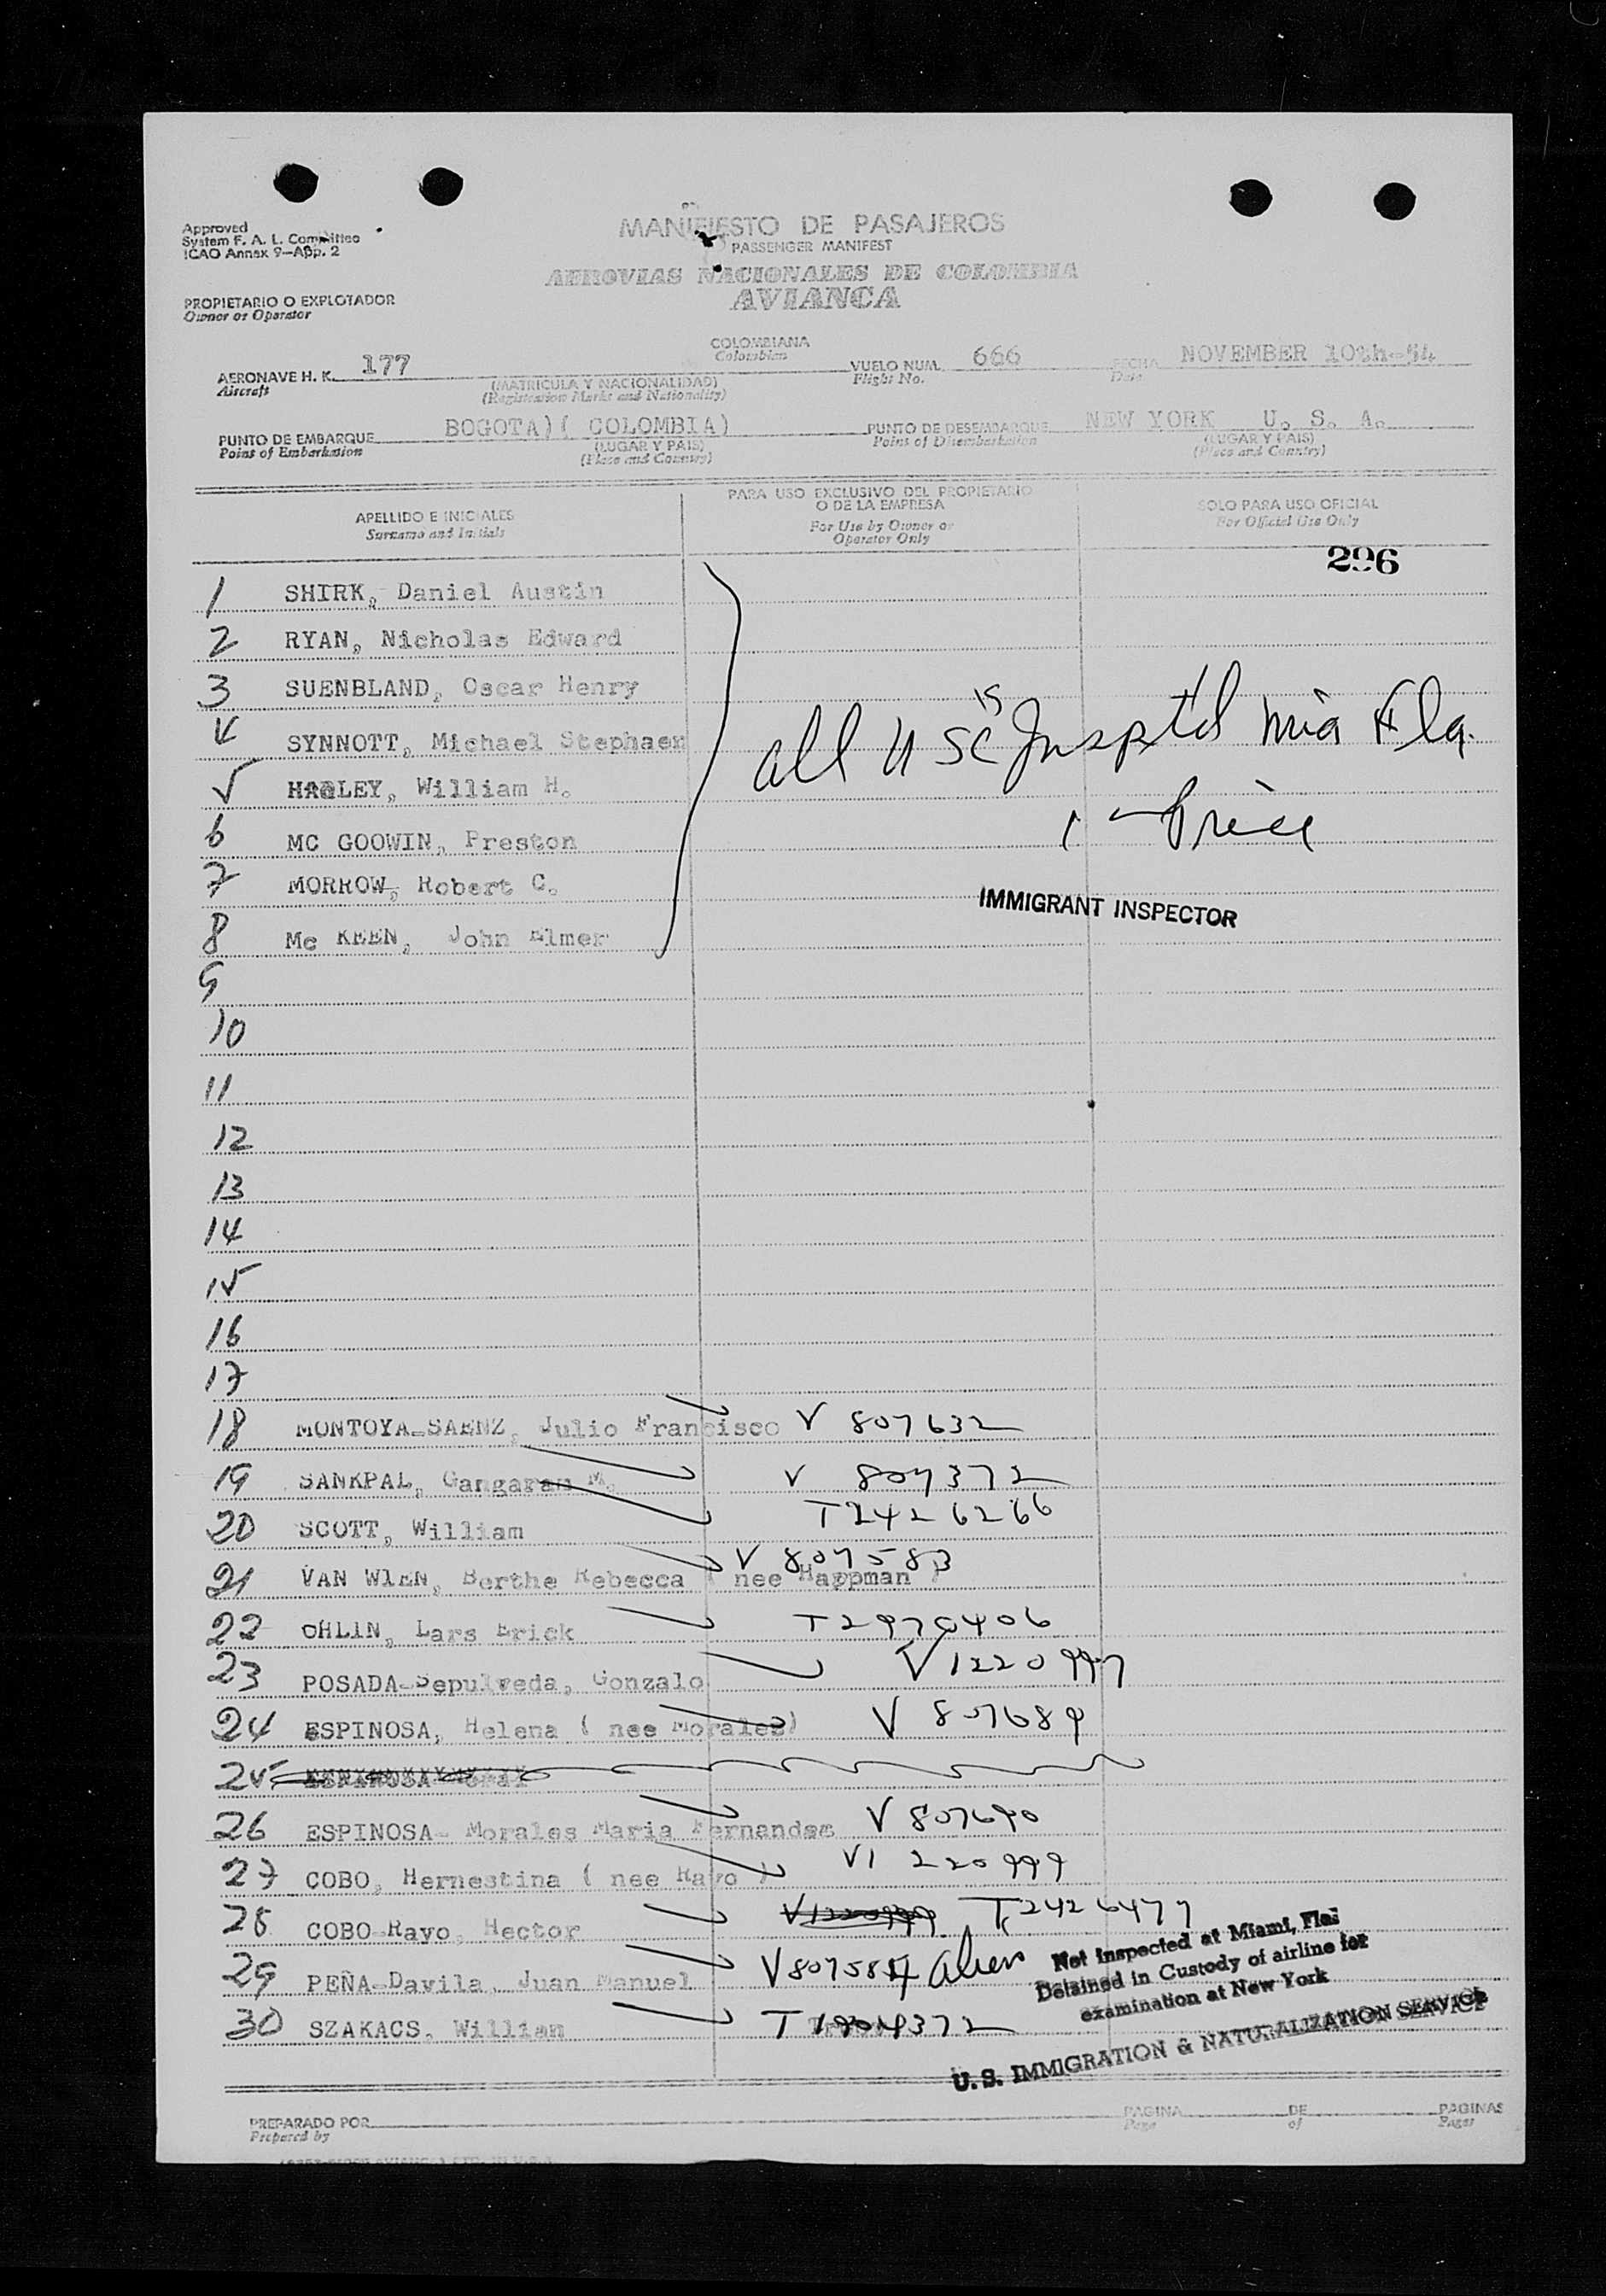 Approved
System F. A. L. Committee
ICAO Annex 9—App. 2
MANIFIESTO DE PASAJEROS
PASSENGER MANIFEST
AEROVIAS NACIONALES DE COLOMBIA
AVIANCA
PROPIETARIO O EXPLOTADOR
Owner or Operator
COLOMBIANA
Colombian
AERONAVE H. K. 177 VUELO NUM. 666 FECHA NOVEMBER 10th-54
Aircraft (MATRICULA Y NACIONALIDAD) Flight No. Date
(Registration Marks and Nationality)
PUNTO DE EMBARQUE BOGOTA)( COLOMBIA) PUNTO DE DESEMBARQUE NEW YORK U. S. A.
Point of Embarkation (LUGAR Y PAIS) Point of Disembarkation (LUGAR Y PAIS)
(Place and Country) (Place and Country)
APELLIDO E INICIALES PARA USO EXCLUSIVO DEL PROPIETARIO SOLO PARA USO OFICIAL
Surname and Initials O DE LA EMPRESA For Official Use Only
For Use by Owner or
Operator Only
296
1 SHIRK, Daniel Austin
2 RYAN, Nicholas Edward
3 SUENBLAND, Oscar Henry
all USC's Inspt'd Mia Fla.
4 SYNNOTT, Michael Stephaen
5 HAGLEY, William H.
6 MC GOOWIN, Preston
Price
7 MORROW, Robert C.
IMMIGRANT INSPECTOR
8 Mc KEEN, John Elmer
9
10
11
12
13
14
15
16
17
18 MONTOYA-SAENZ, Julio Francisco V 807632
19 SANKPAL, Gangaram M. V 807372
20 SCOTT, William T2426266
21 VAN WIEN, Berthe Rebecca ( nee Happman ) V 807583
22 OHLIN, Lars Erick T2976406
23 POSADA-Sepulveda, Gonzalo V1220997
24 ESPINOSA, Helena ( nee Morales) V 807689
25
26 ESPINOSA- Morales Maria Fernandez V 807690
27 COBO, Hernestina ( nee Rayo ) V1 220999
28 COBO-Rayo, Hector V1220999 T2426477
29 PEÑA-Davila, Juan Manuel V807584 Alien
30 SZAKACS, William T1904372
Not Inspected at Miami, Fla.
Detained in Custody of airline for
examination at New York
U. S. IMMIGRATION & NATURALIZATION SERVICE
PREPARADO POR PAGINA DE PAGINAS
Prepared by Page of Pages